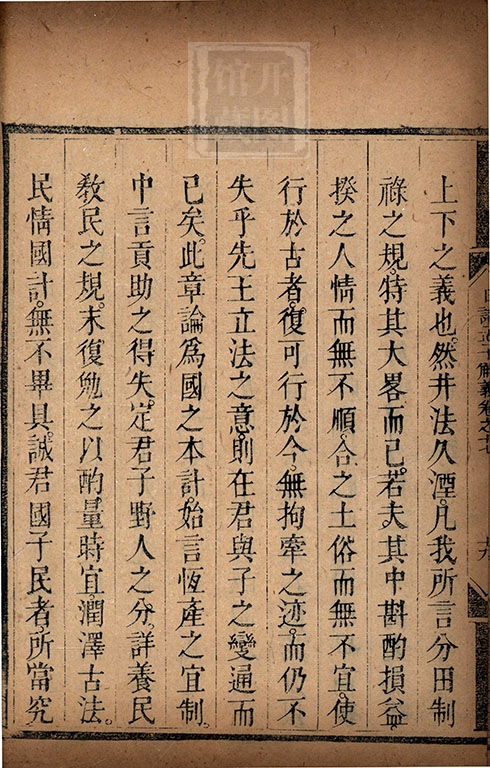 上下之義也。然井法久湮。凡我所言分田制
祿之規。特其大畧而已。若夫其中斟酌損益。
揆之人情而無不順。合之土俗而無不宜。使
行於古者。復可行於今。無拘牽之迹。而仍不
失乎先王立法之意。則在君與子之變通而
已矣。此章論爲國之本計。始言恆產之宜制。
中言貢助之得失。定君子野人之分。詳養民
敎民之規。末復勉之以酌量時宜。潤澤古法。
民情國計。無不畢具。誠君國子民者。所當究
解義卷之十七